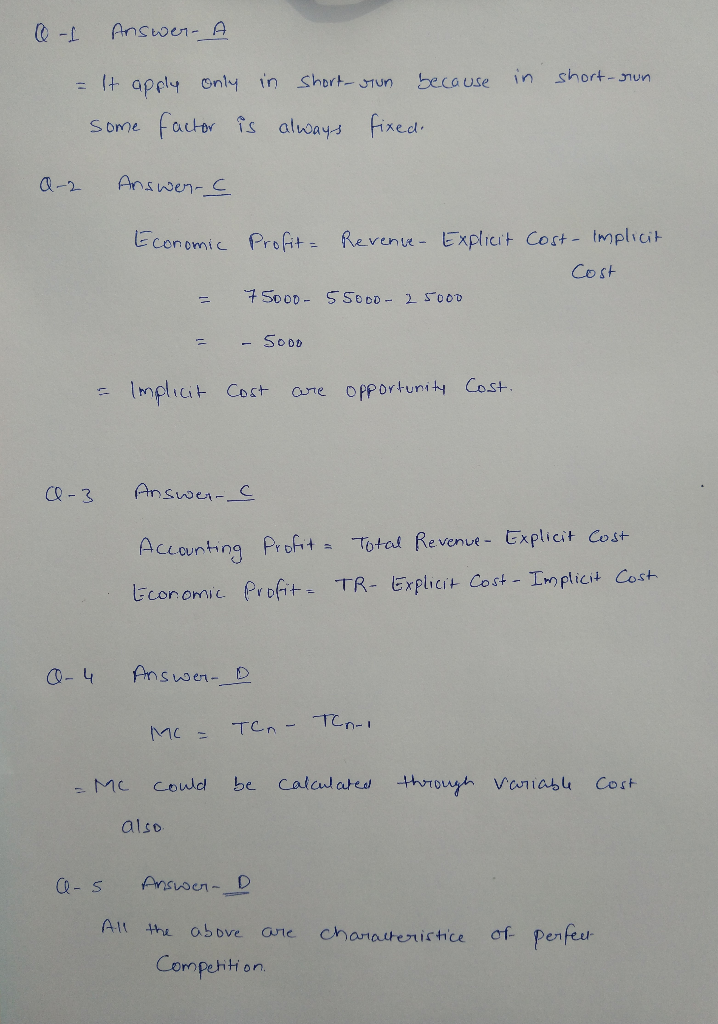 Q-1 Answer- A
= It apply only in short-run because in short-run
some factor is always fixed.
Q-2 Answer- C
Economic Profit = Revenue - Explicit Cost - Implicit
Cost
= 75000 - 55000 - 25000
= - 5000
= Implicit Cost are opportunity Cost.
Q-3 Answer- C
Accounting Profit = Total Revenue - Explicit Cost
Economic Profit = TR - Explicit Cost - Implicit Cost
Q-4 Answer- D
MC = TCn - TCn-1
= MC could be calculated through variable cost
also
Q-5 Answer- D
All the above are characteristice of perfect
Competition.